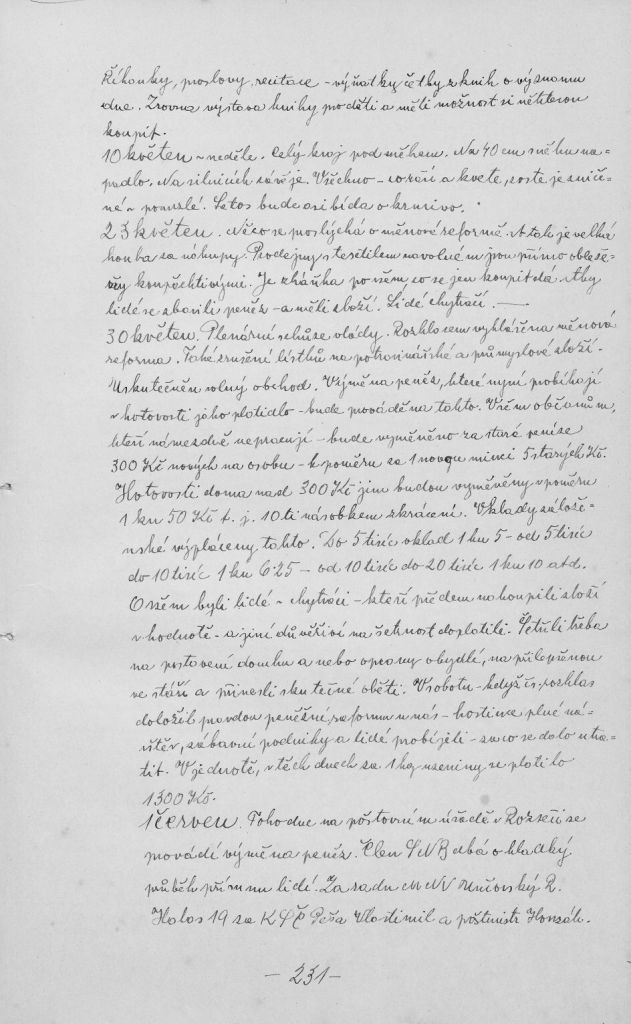 Říkanky, proslovy, recitace - výňatky četby z knih o významu
dne. Zrovna výstava knihy pro děti a měli možnost si některou
koupit.
10 květen - neděle. Celý kraj pod sněhem. Na 40 cm sněhu na=
padlo. Na silnicích závěje. Všechno - co září a kvete, zoste je zniče=
né - pomrzlé. Letos bude asi bída o krmivo.
23 květen. Něco se poslýchá o měnové reformě. A tak je velká
honba za nákupy. Prodejny s textilem na volné m jsou přímo obleže=
ny koupěchtivými. Je sháňka po všem co se jen koupit dá. Aby
lidé se zbavili peněz - a měli zboží. Lidé chytráčí. —
30 květen. Plenární schůze vlády. Rozhlasem vyhlášena měnová
reforma. Také zrušení lístků na potravinářské a průmyslové zboží -
Uskutečněn volný obchod. Výměna peněz, které nyní probíhají
v hotovosti jého platidlo - bude prováděna takto. Všem občanům,
kteří námezdně nepracují - bude vyměněno za staré peníze
300 Kč nových na osobu - k poměru za 1 novou minci 5 starých Kč.
Hotovosti doma nad 300 Kč jim budou vyměněny v poměru
1 ku 50 Kč t. j. 10ti násobkem zkrácení. Vklady zálože=
nské výpláceny takto. Do 5 tisíc vklad 1 ku 5 - od 5 tisíc
do 10 tisíc 1 ku 6·25 - od 10 tisíc do 20 tisíc 1 ku 10 atd.
Ovšem byli lidé - chytráci - kteří předem nakoupili zboží
v hodnotě - a jiní důvěřiví na šetrnost doplatili. Šetřili třeba
na postavení domku a nebo opravy obydlí, na přilepšenou
ve stáří a přinesli skutečné oběti. V sobotu - když čs. rozhlas
doložil pravdou peněžní reformu u nás - hostince plné ná=
vštěv, zábavní podniky a lidé probíjeli - za co se dalo utra=
tit. V jednotě, v těch dnech za 1 kg uzeniny se platilo
1300 Kč.
1 červen. Toho dne na poštovním úřadě v Rozseči se
provádí výměna peněz. Člen SNB dbá o hladký
průběh přísunu lidí. Za radu MNV Mučovský R.
Halas 19 za KSČ Peša Vlastimil a poštmistr Honzák.
- 231 -